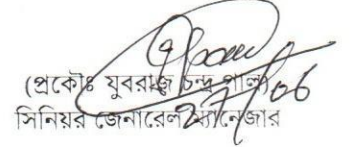 (প্রকৌঃ যুবরাজ চন্দ্র পাল)
সিনিয়র জেনারেল ম্যানেজার
27/06